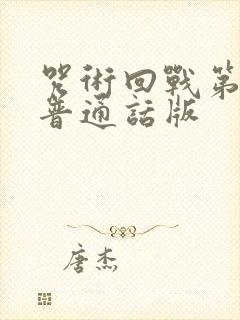 咒術回戰第
普通話版
唐杰